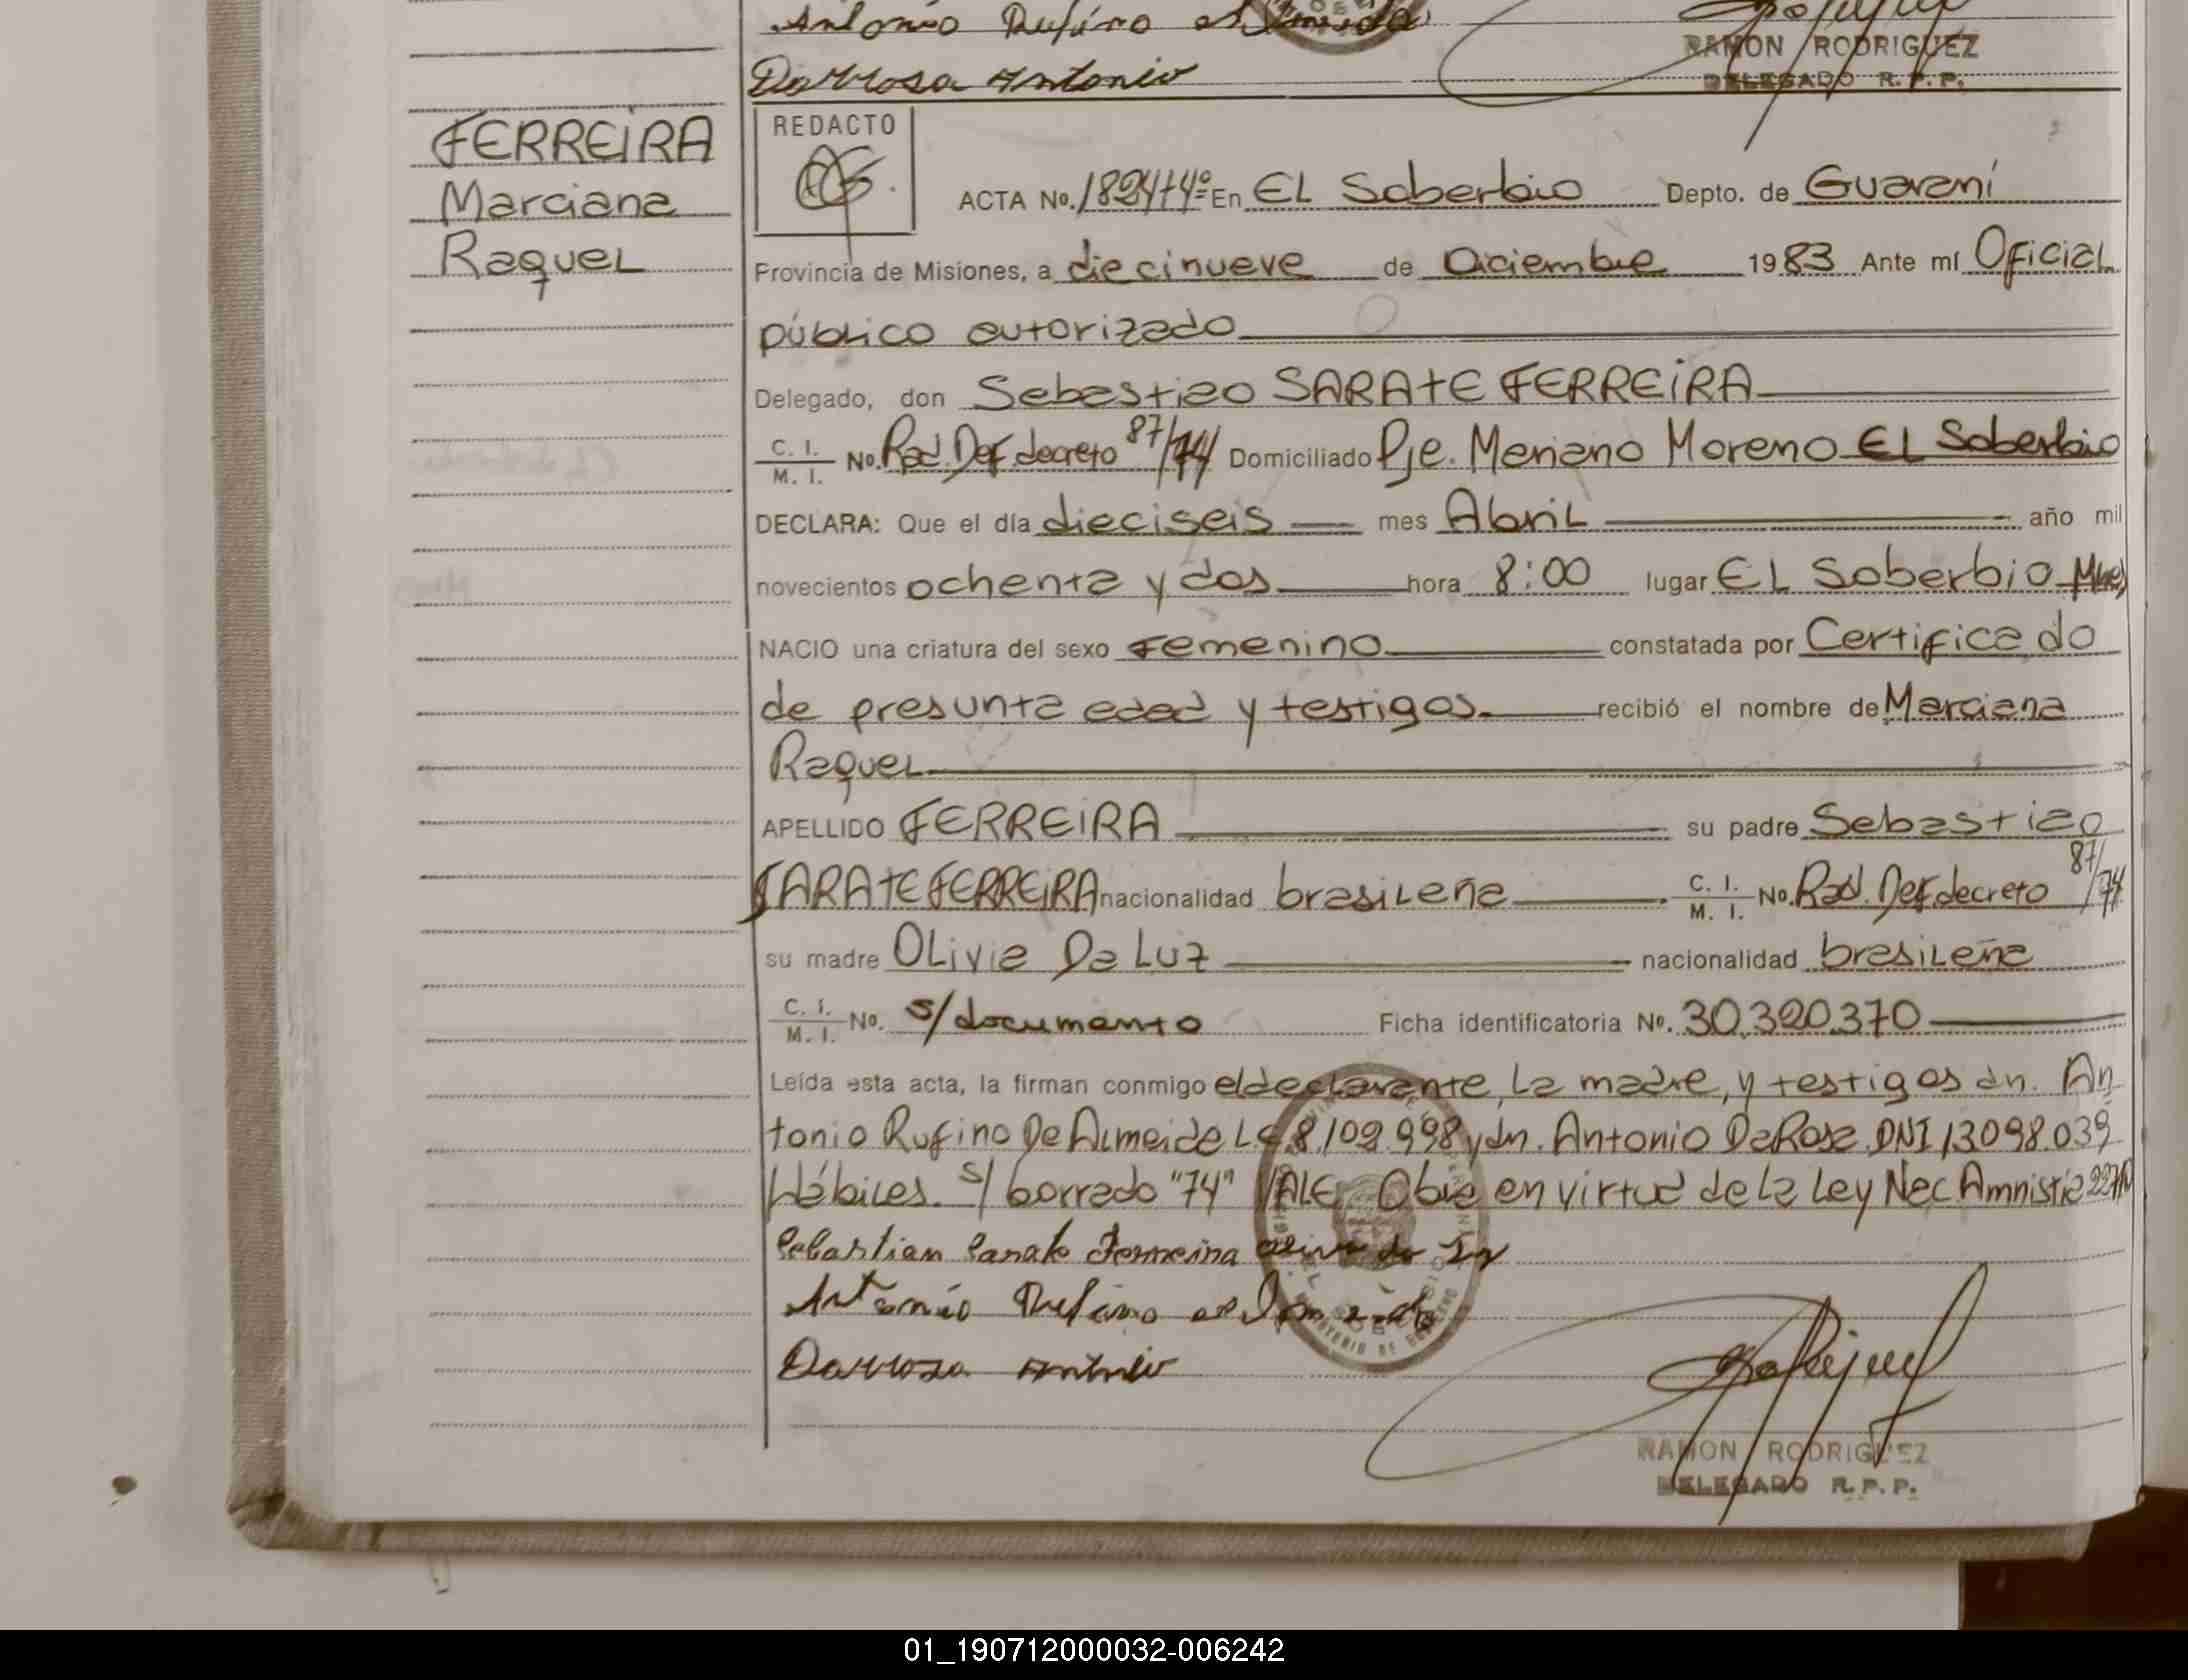 Antonio Rufino
Darrosa Antonio
RAMON RODRIGUEZ
DELEGADO R.P.P.
FERREIRA
Marciana
Raquel
REDACTO
ACTA No. En EL Soberbio Depto. de Guaraní
Provincia de Misiones, a diecinueve de Diciembre 1983 Ante mí Oficial
público autorizado
Delegado, don Sebastiao SARATE FERREIRA
C. I. / M. I. No. Rad. Def. decreto 87/74 Domiciliado Pje. Mariano Moreno EL Soberbio
DECLARA: Que el día dieciseis mes Abril año mil
novecientos ochenta y dos hora 8:00 lugar EL Soberbio Mnes
NACIO una criatura del sexo Femenino constatada por Certificado
de presunta edad y testigos recibió el nombre de Marciana
Raquel
APELLIDO FERREIRA su padre Sebastiao
SARATE FERREIRA nacionalidad brasileña C. I. / M. I. No. Rad. Def. decreto 87/74
su madre Olivia Da Luz nacionalidad brasileña
C. I. / M. I. No. s/documento Ficha identificatoria No. 30.320.370
Leída esta acta, la firman conmigo el declarante, la madre, y testigos dn. An-
tonio Rufino De Almeida 8.102.998 y dn. Antonio DaRosa DNI 13.098.039
Hábiles. s/ borrado "74" VALE. Obra en virtud de la Ley Nac Amnistía
Sebastian Sarate Ferreira
Antonio Rufino
Darrosa Antonio
RAMON RODRIGUEZ
DELEGADO R.P.P.
01_190712000032-006242